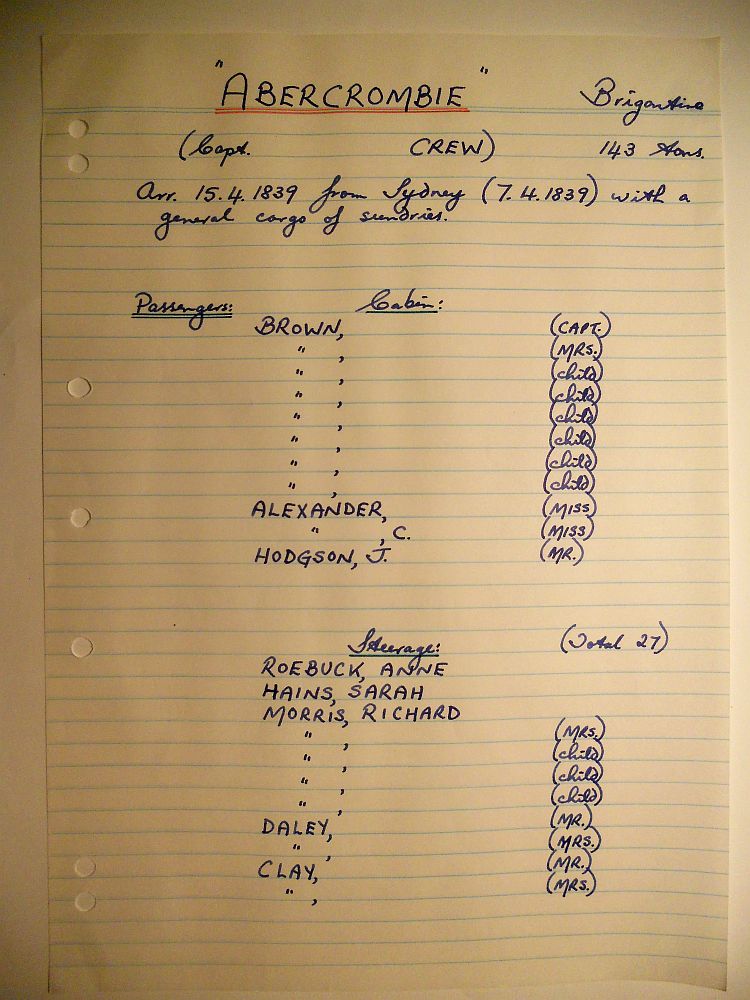 "ABERCROMBIE" Brigantine
(Capt. CREW) 143 tons.
Arr. 15.4.1839 from Sydney (7.4.1839) with a
general cargo of sundries.
Passengers: Cabin:
BROWN, (CAPT.)
" , (MRS.)
" , (child)
" , (child)
" , (child)
" , (child)
" , (child)
" , (child)
ALEXANDER, (MISS)
" , C. (MISS)
HODGSON, J. (MR.)
Steerage: (Total 27)
ROEBUCK, ANNE
HAINS, SARAH
MORRIS, RICHARD
" , (MRS.)
" , (child)
" , (child)
" , (child)
DALEY, (MR.)
" , (MRS.)
CLAY, (MR.)
" , (MRS.)